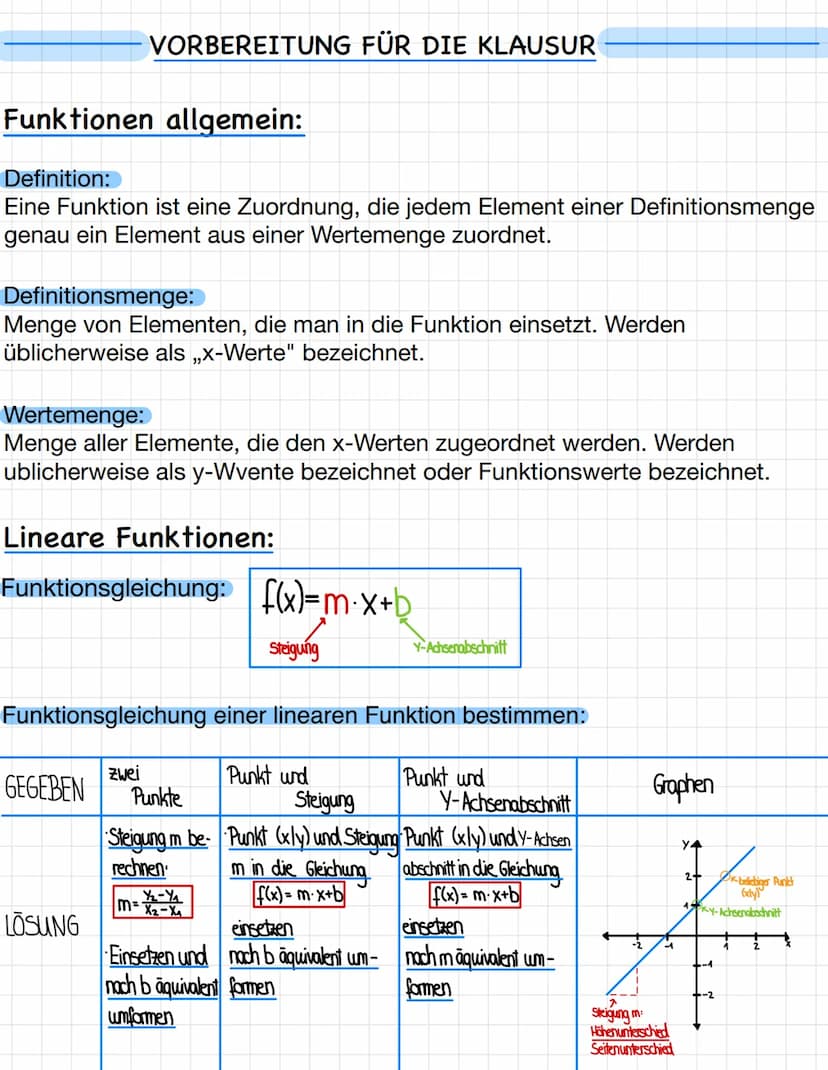 VORBEREITUNG FÜR DIE KLAUSUR
Funktionen allgemein:
Definition:
Eine Funktion ist eine Zuordnung, die jedem Element einer Definitionsmenge
genau ein Element aus einer Wertemenge zuordnet.
Definitionsmenge:
Menge von Elementen, die man in die Funktion einsetzt. Werden
üblicherweise als „x-Werte" bezeichnet.
Wertemenge:
Menge aller Elemente, die den x-Werten zugeordnet werden. Werden
ublicherweise als y-Wvente bezeichnet oder Funktionswerte bezeichnet.
Lineare Funktionen:
Funktionsgleichung:
f(x)=m·x+b
Steigung
Y-Achsenabschnitt
Funktionsgleichung einer linearen Funktion bestimmen:
GEGEBEN
zwei
Punkte
Punkt und
Steigung
Punkt und
Y-Achsenabschnitt
Graphen
LÖSUNG
·Steigung m be-
rechnen:
m= Y₂-Y₁
X₂-X₁
·Einsetzen und
nach b äquivalent
umformen
Punkt (x|y) und Steigung
m in die Gleichung
f(x)= m·x+b
einsetzen
nach b äquivalent um-
formen
Punkt (x|y) und Y-Achsen
abschnitt in die Gleichung
f(x)= m·x+b
einsetzen
nach m äquivalent um-
formen
y
2
1
-2
-1
1
2
x
-1
-2
beliebiger Punkt
(x|y)
Y-Achsenabschnitt
Steigung m:
Höhenunterschied
Seitenunterschied